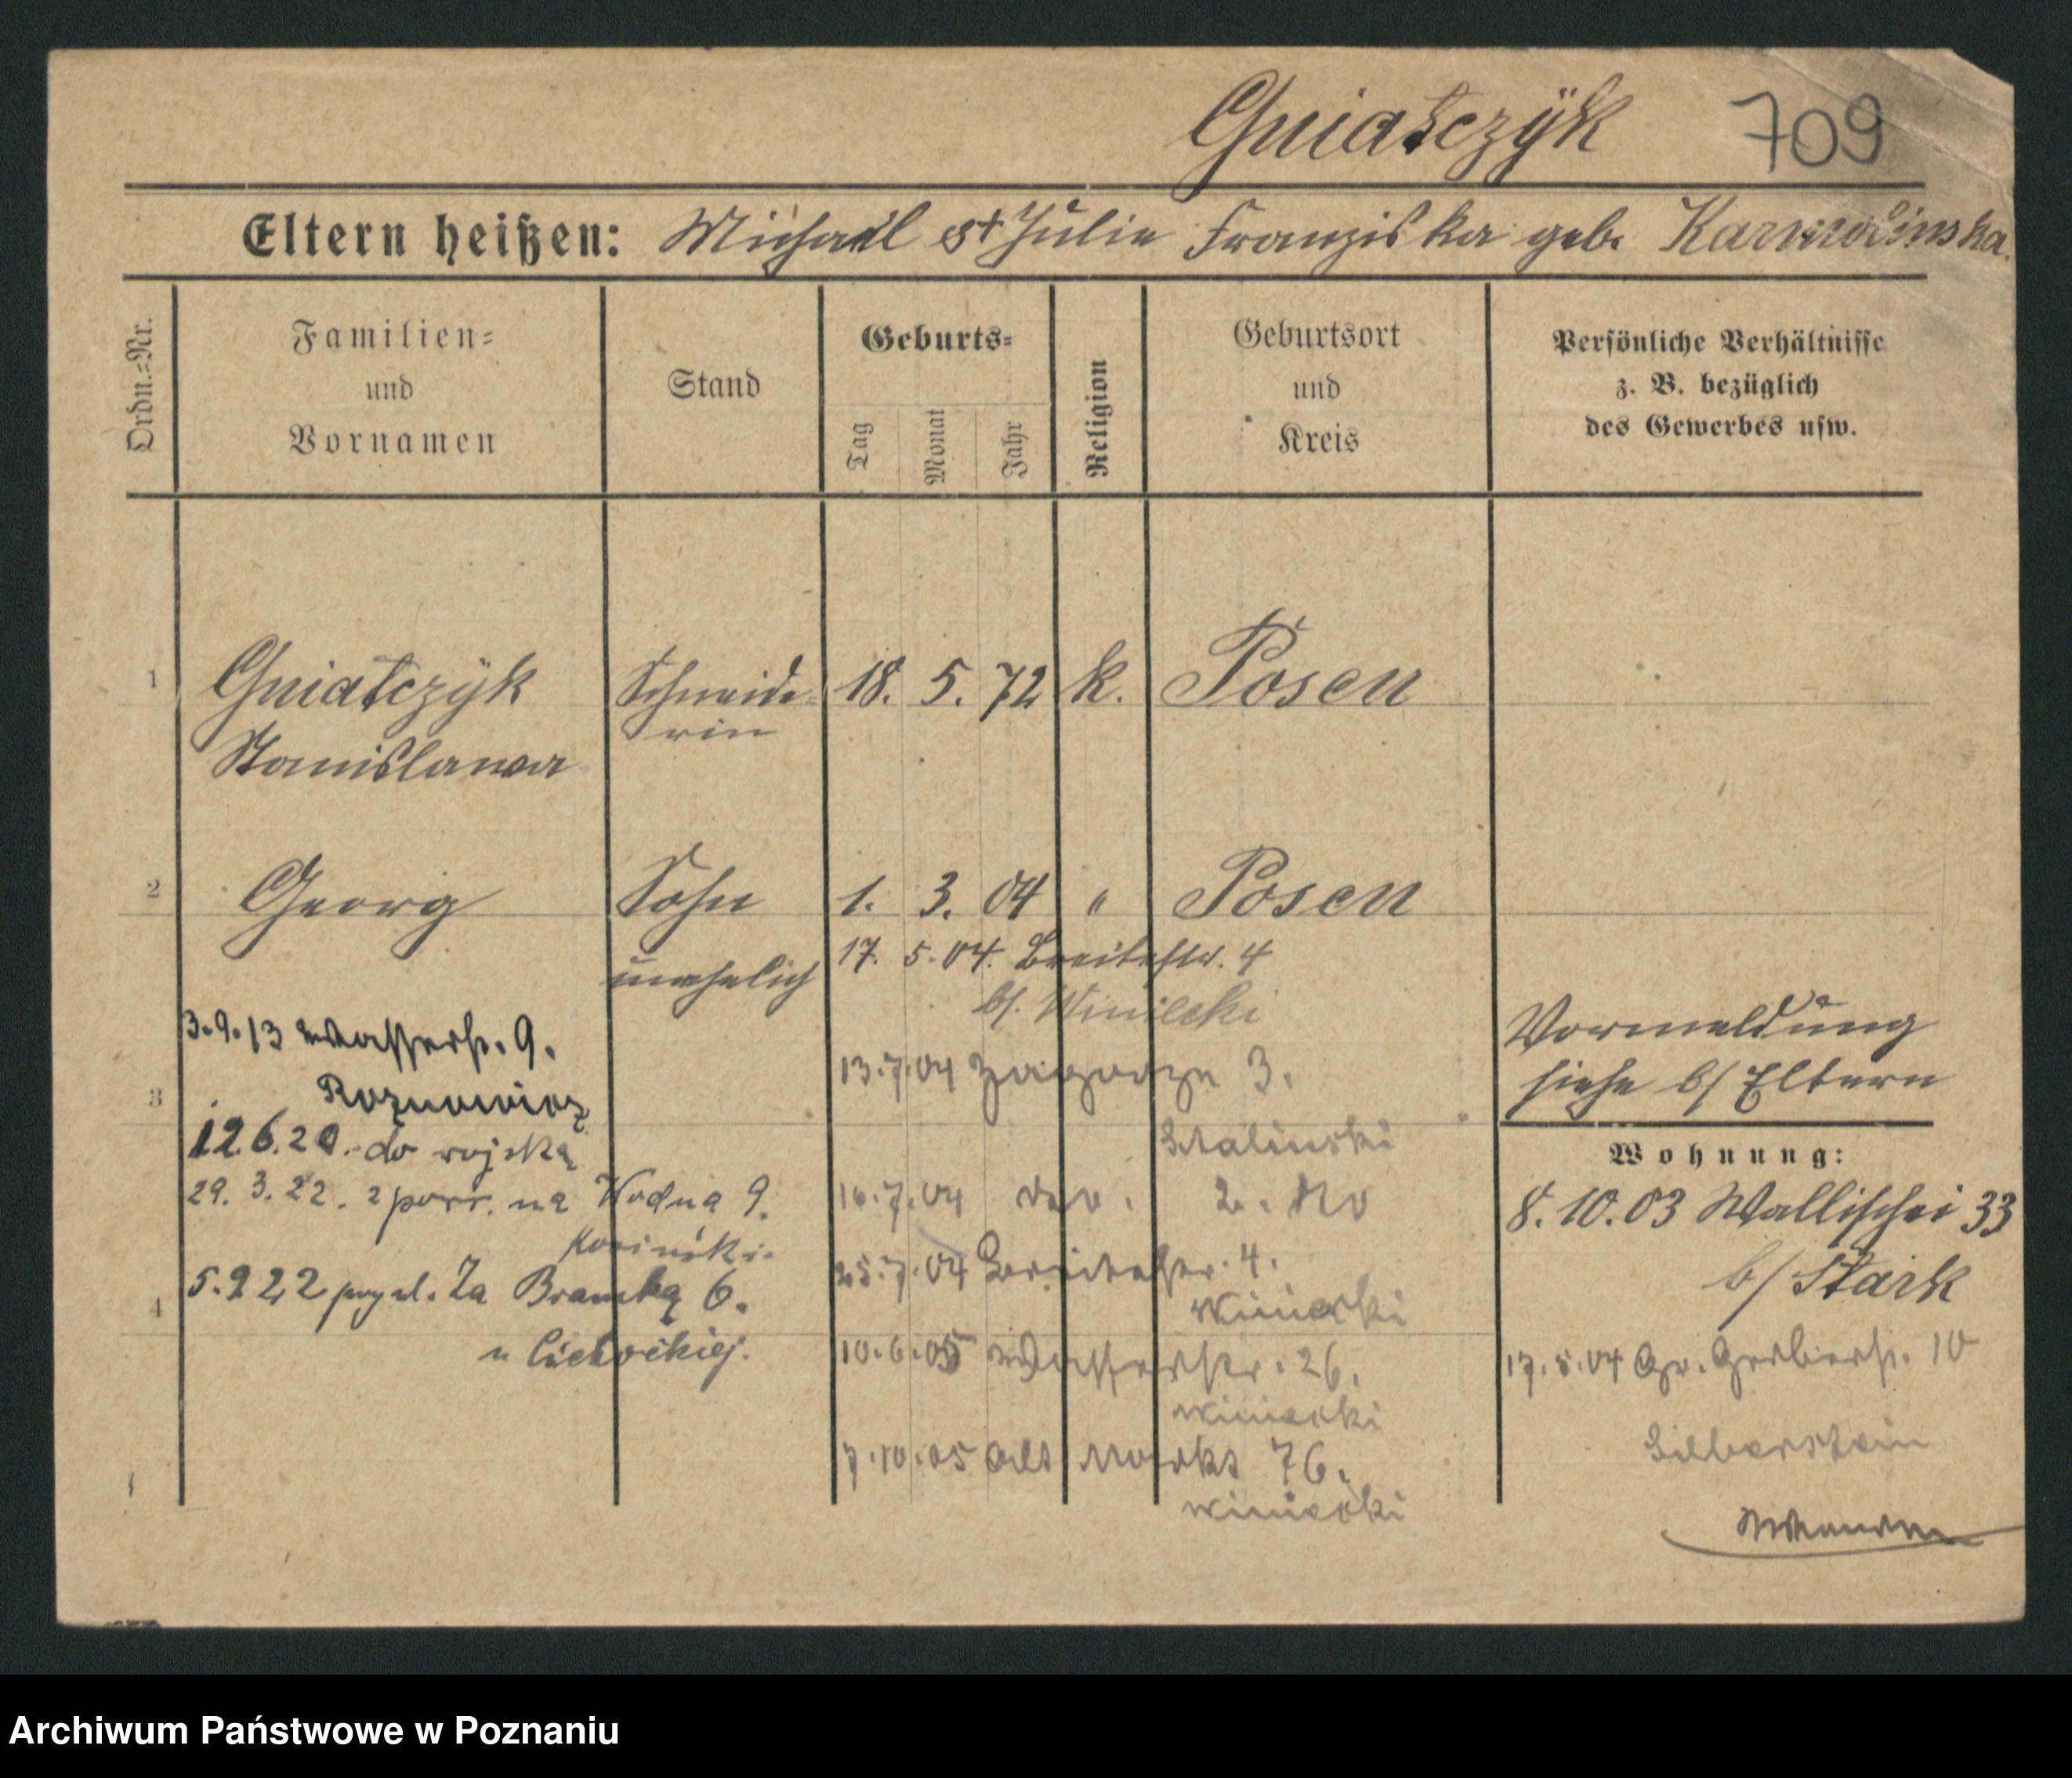 Gniatczÿk 709
Eltern heißen: Michael et Julie Franziska geb. Karmolinska.
Ordn.=Nr.
Familien=
und
Vornamen
Stand
Geburts=
Tag
Monat
Jahr
Religion
Geburtsort
und
Kreis
Persönliche Verhältnisse
z. B. bezüglich
des Gewerbes usw.
1 Gniatczÿk Schneide= 18. 5. 72 k. Posen
Stanislawa rin
2 Georg Sohn 1. 3. 04 " Posen
unehelich
17. 5. 04. Breitestr. 4
b/. Winiecki
13.7.04 Zagorze 3.
16.7.04
25.7.04 Breitestr. 4.
Winiecki
10.6.05 Wasserstr. 26.
Winiecki
7.10.05 Alt Markt 76.
Winiecki
3.9.13 Wasserstr. 9.
3 Roznowicz
12.6.20. do wojska
29. 3. 22. z powr. na Wodna 9.
5.9 22 Za Bramką 6.
4
u Cichockiej.
Vormeldung
siehe b/ Eltern
Wohnung:
8. 10. 03 Wallischei 33
b/ Stark
17.5.04 Gr. Gerberstr. 10
Silberstein
Archiwum Państwowe w Poznaniu